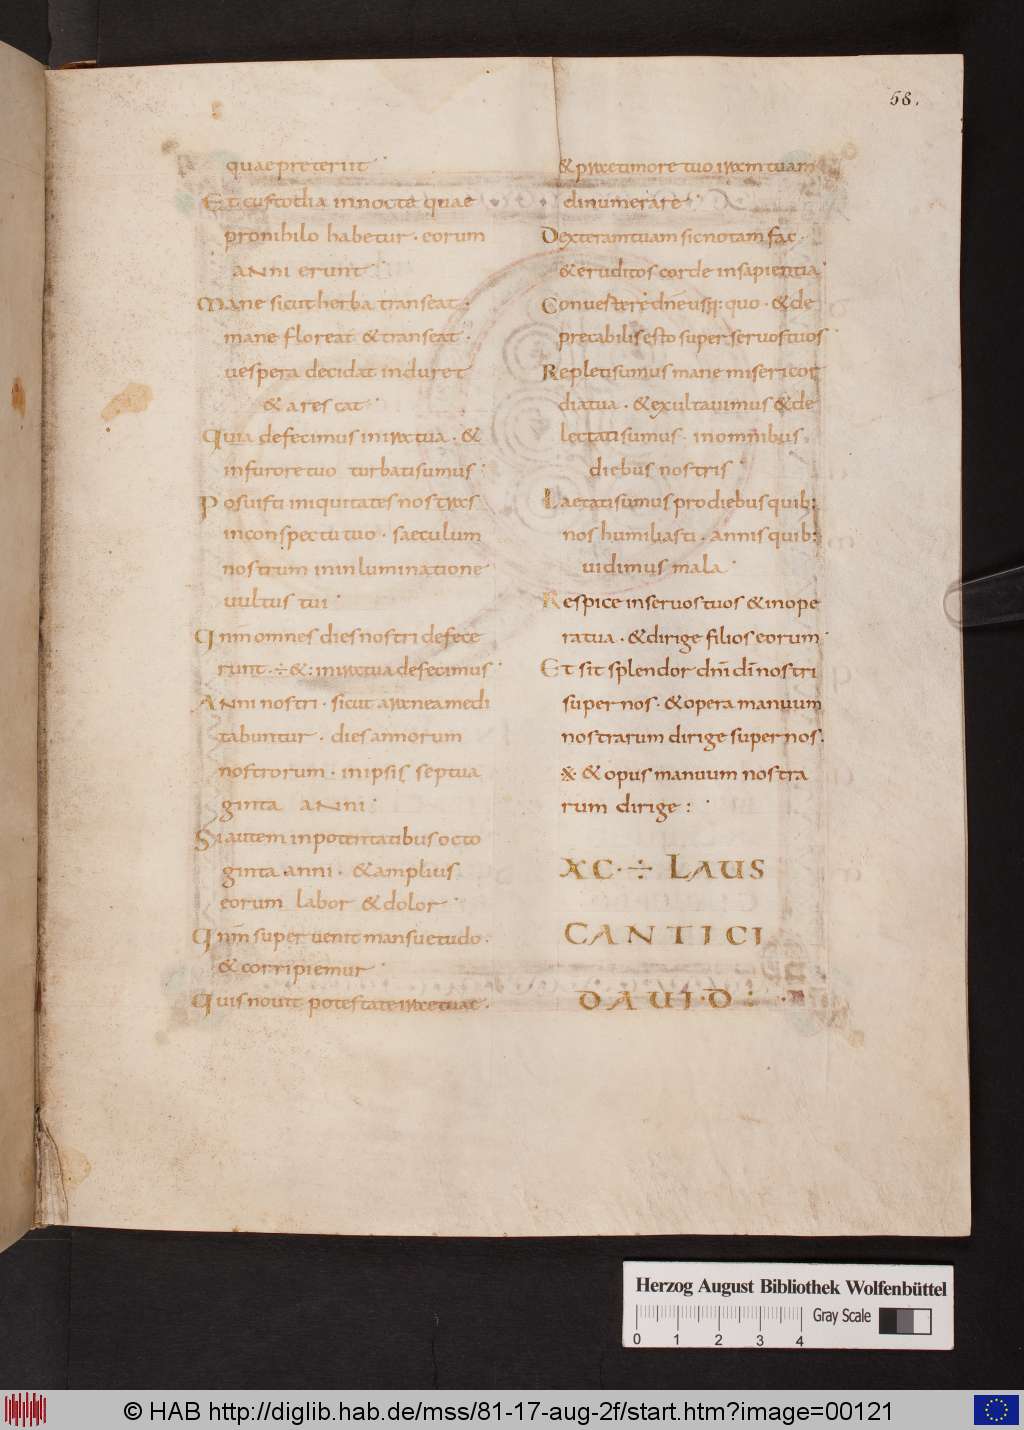 58.
quae preteriit
Et custodia in nocte quae
pronihilo habetur · eorum
anni erunt
Mane sicut herba transeat ·
mane floreat & transeat ·
uespera decidat induret
& arescat
Quia defecimus in ira tua · &
in furore tuo turbati sumus
Posuisti iniquitates nostras
in conspectu tuo · saeculum
nostrum in inluminatione
uultus tui
Qnm̄ omnes dies nostri defece
runt · ÷ &: in ira tua defecimus
Anni nostri · sicut aranea medi
tabuntur · dies annorum
nostrorum · in ipsis septua
ginta anni
Si autem in potentatibus octo
ginta anni · & amplius
eorum labor & dolor
Qnm̄ super uenit mansuetudo ·
& corripiemur
Quis nouit potestate irae tuae ·
& prae timore tuo iram tuam
dinumerare
Dexteram tuam sic notam fac ·
& eruditos corde in sapientia
Conuertere dn̄e usq: quo · & de
precabilis esto super seruos tuos
Repleti sumus mane misericor
dia tua · & exultauimus & de
lectati sumus · in omnibus
diebus nostris
Laetati sumus pro diebus quib:
nos humiliasti · annis quib:
uidimus mala
Respice in seruos tuos & in ope
ra tua · & dirige filios eorum
Et sit splendor dn̄i dī nostri
super nos · & opera manuum
nostrarum dirige super nos.
※ & opus manuum nostra
rum dirige :
XC · ÷ LAUS
CANTICI
DAUI·D :
Herzog August Bibliothek Wolfenbüttel
Gray Scale
0 1 2 3 4
© HAB http://diglib.hab.de/mss/81-17-aug-2f/start.htm?image=00121